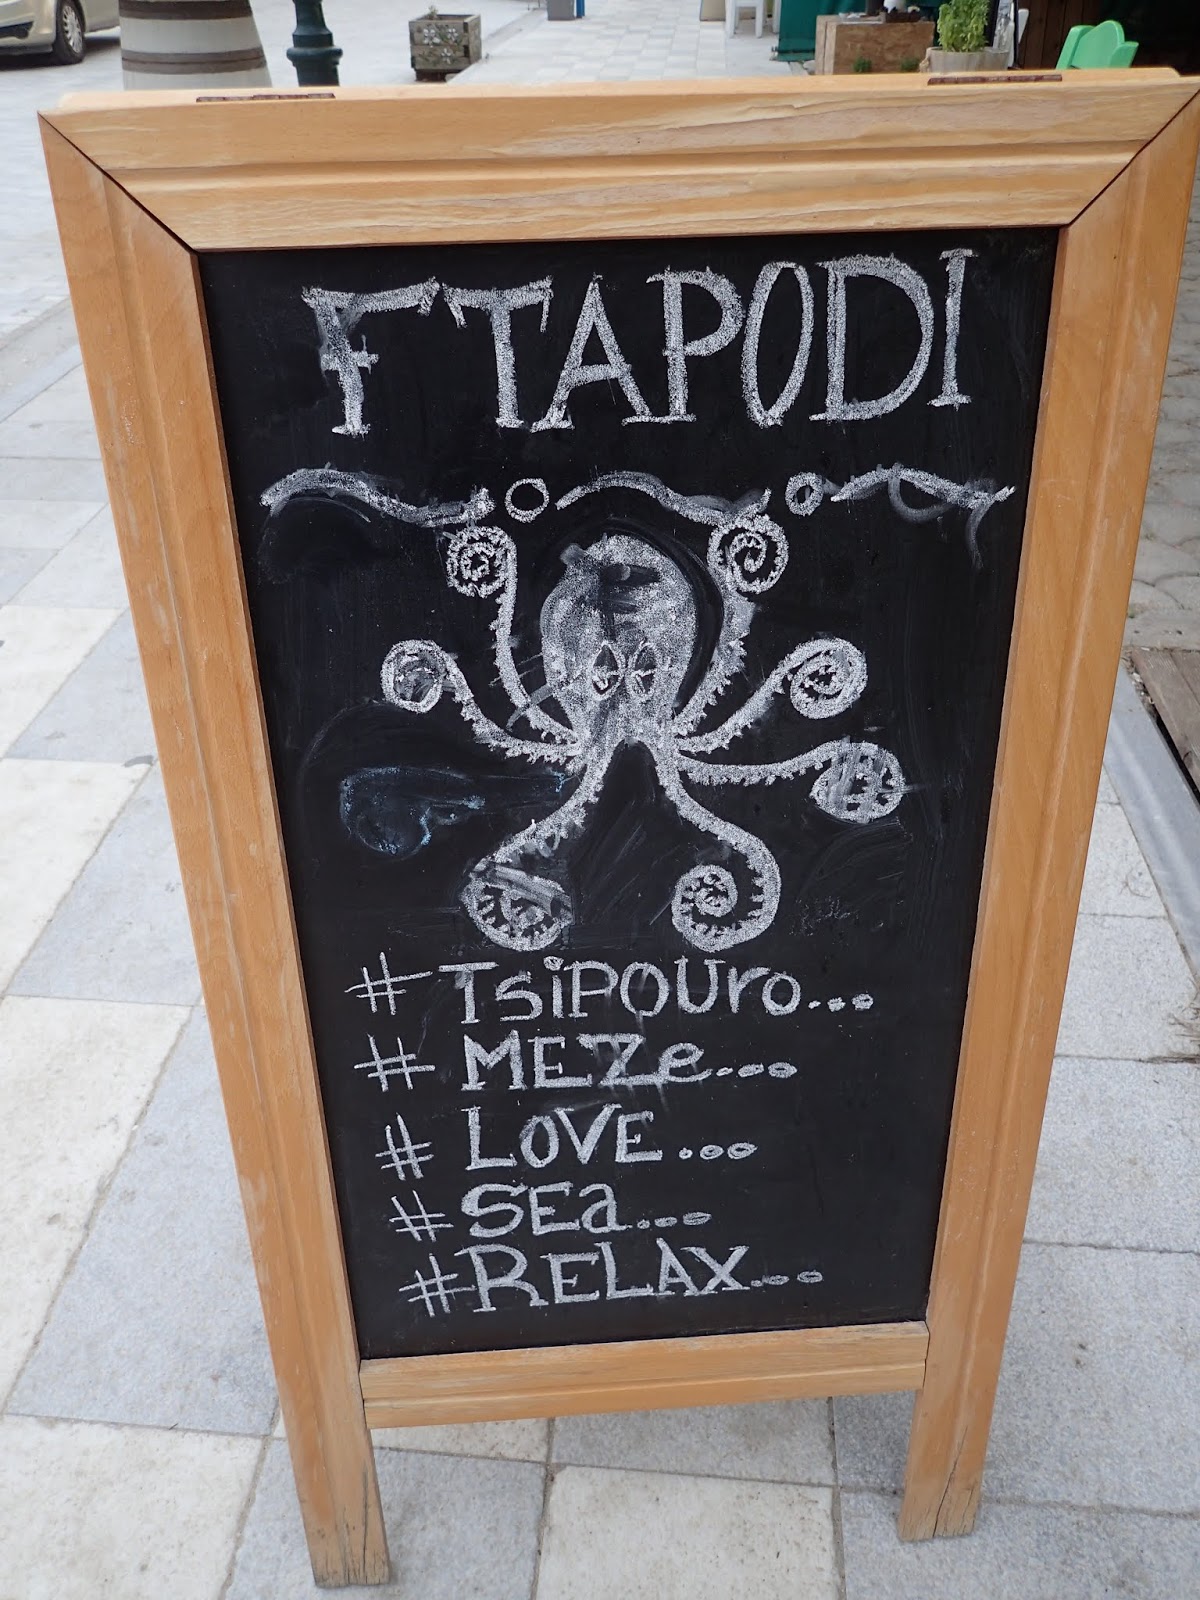 FTAPODI
# TsiPOUro...
# MEZe...
# LOVE...
# SEa...
#RELAX...